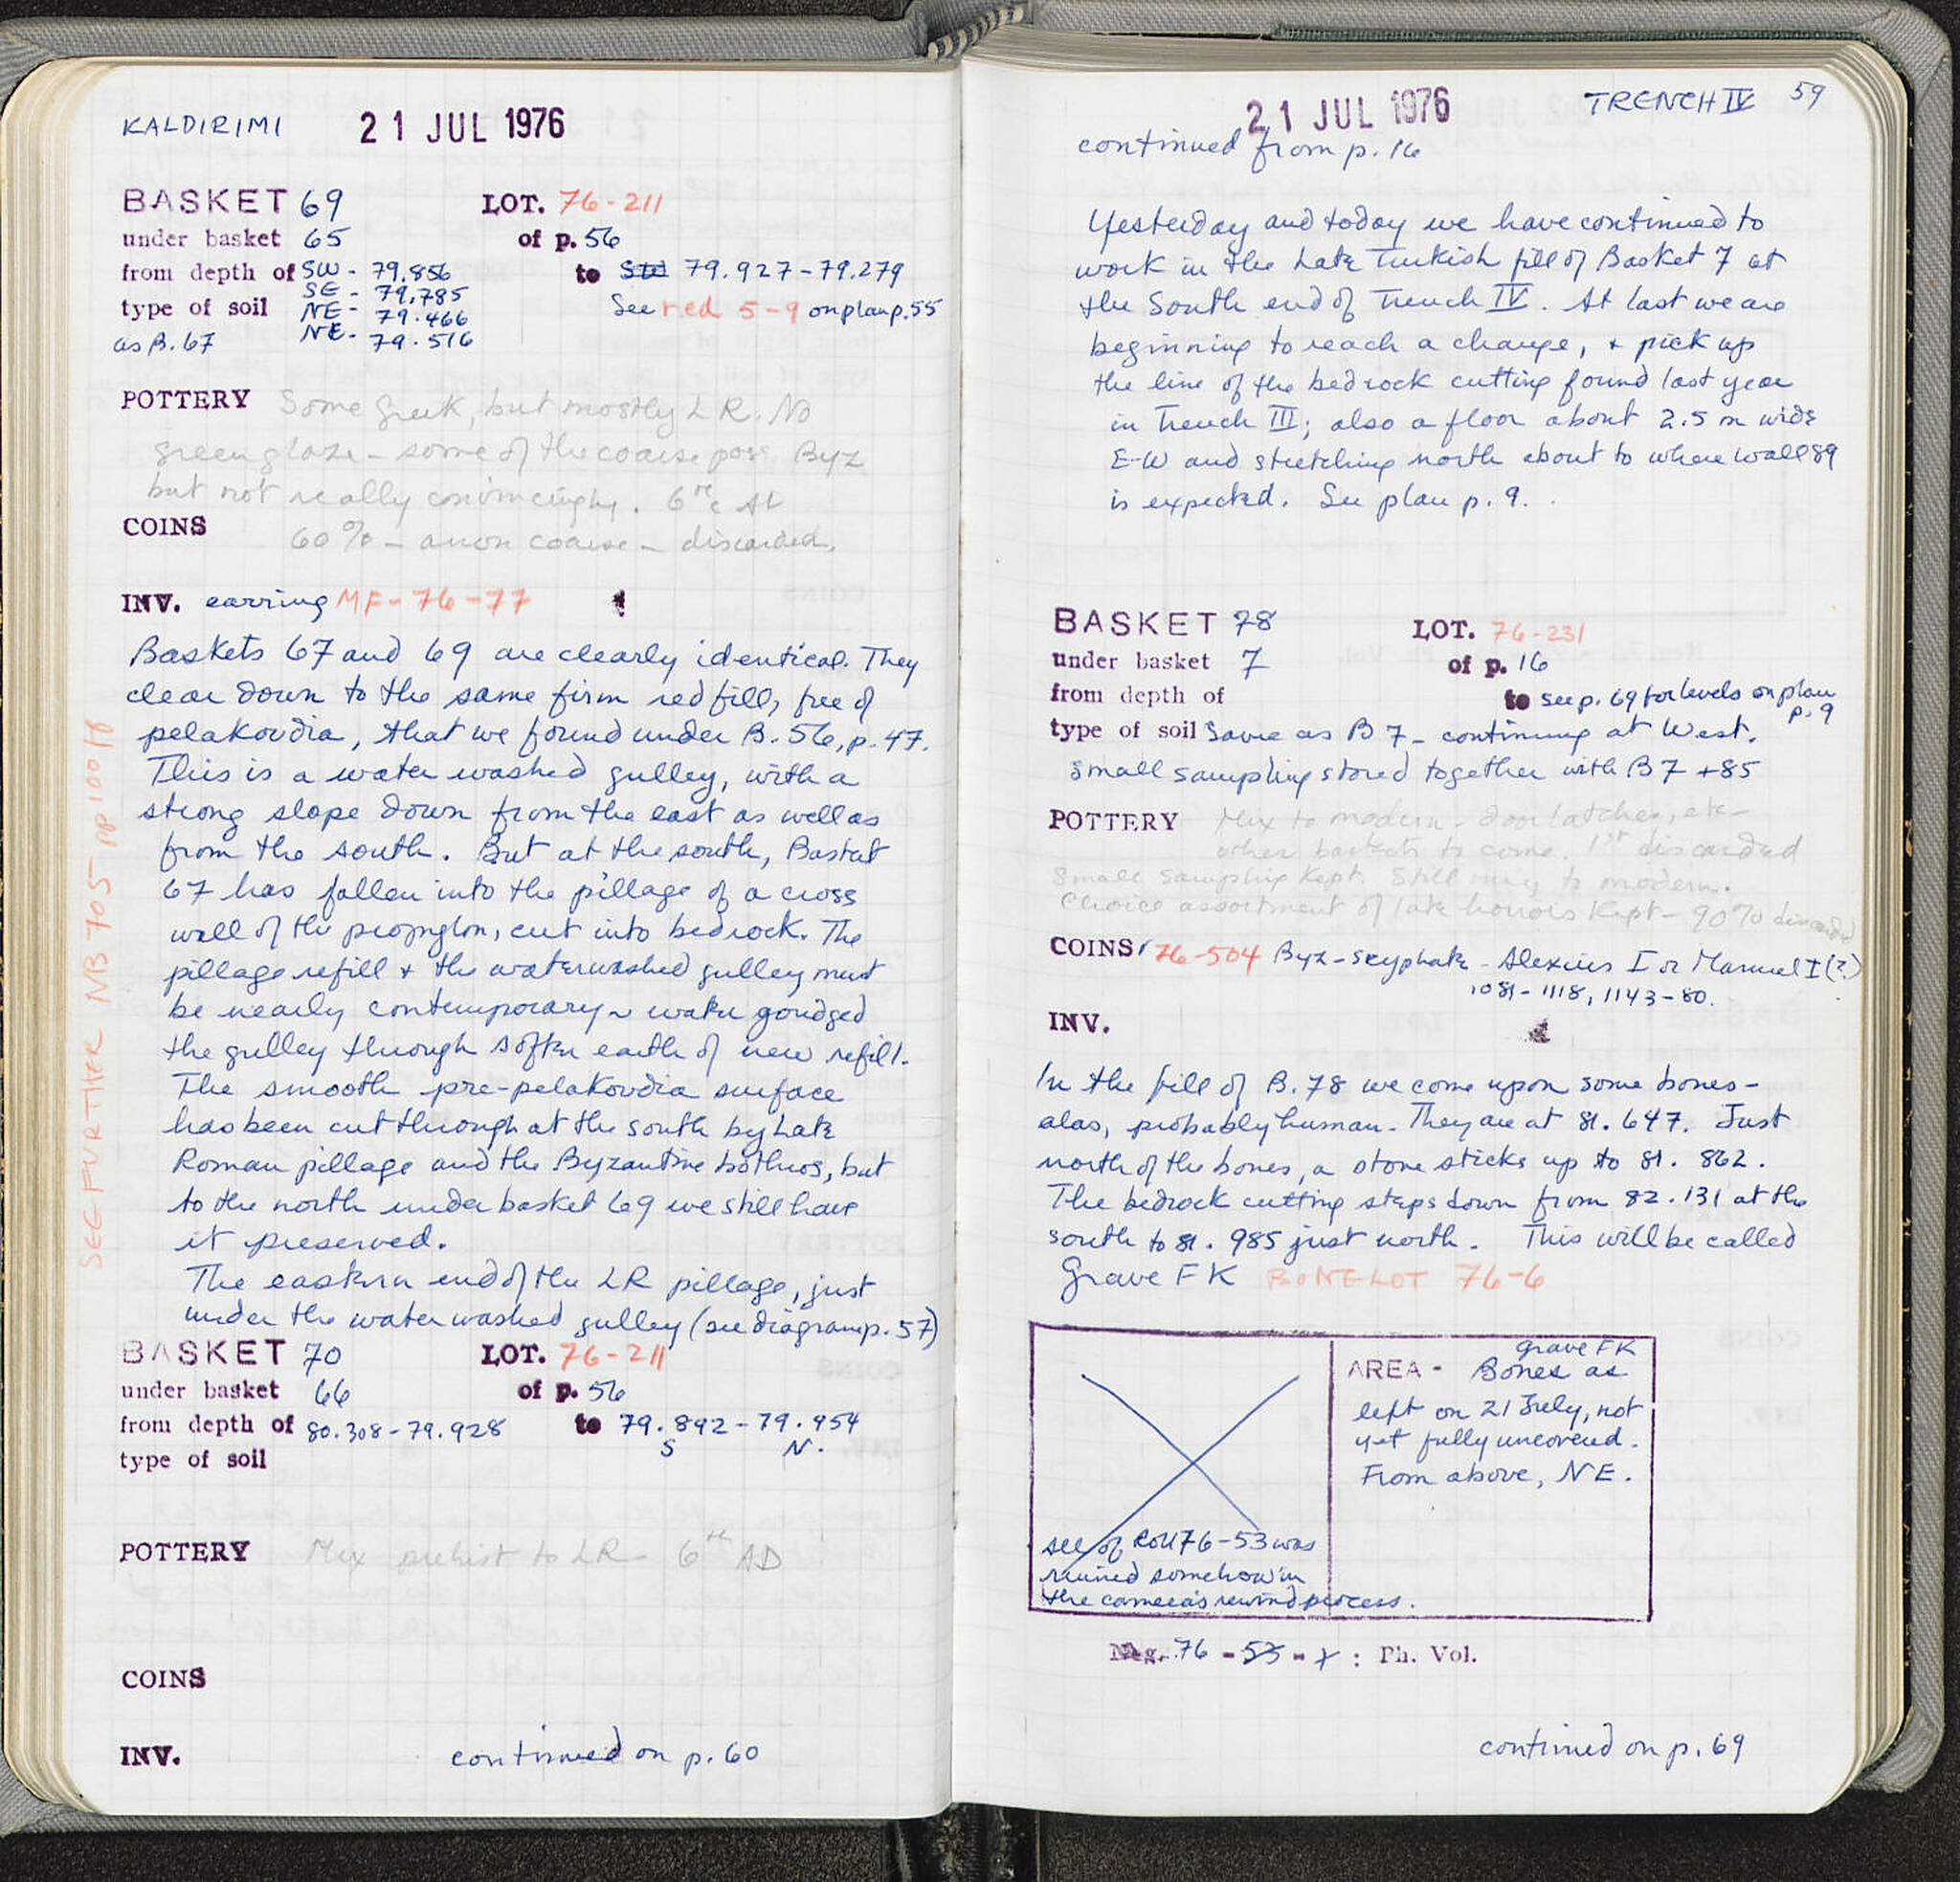 KALDIRIMI 21 JUL 1976
BASKET 69 LOT. 76-211
under basket 65 of p. 56
from depth of SW - 79.856 to 79.927-79.279
SE - 79.785
type of soil NE - 79.466 See red 5-9 on plan p.55
as B.67 NE - 79.516
POTTERY Some Greek, but mostly LR. No
green glaze - some of the coarse poss Byz
but not really convincingly. 6th c AD
COINS
60% - anon coarse - discarded.
INV. earring MF-76-77
Baskets 67 and 69 are clearly identical. They
clear down to the same firm red fill, free of
pelakoudia, that we found under B.56, p.47.
This is a water washed gulley, with a
strong slope down from the east as well as
from the south. But at the south, Basket
67 has fallen into the pillage of a cross
wall of the propylon, cut into bedrock. The
pillage refill + the waterwashed gulley must
be nearly contemporary ~ water goudged
the gulley through softer earth of new refill.
The smooth pre-pelakoudia surface
has been cut through at the south by Late
Roman pillage and the Byzantine bothros, but
to the north under basket 69 we still have
it preserved.
The eastern end of the LR pillage, just
under the water washed gulley (see diagram p. 57)
SEE FURTHER NB 705 pp 100 ff
BASKET 70 LOT. 76-211
under basket 66 of p. 56
from depth of 80.308-79.928 to 79.892-79.954
S N.
type of soil
POTTERY Mix prehist to LR 6th AD
COINS
INV. continued on p. 60
21 JUL 1976 TRENCH IV 59
continued from p. 16
Yesterday and today we have continued to
work in the Late Turkish fill of Basket 7 at
the South end of Trench IV. At last we are
beginning to reach a change, + pick up
the line of the bedrock cutting found last year
in Trench III; also a floor about 2.5 m wide
E-W and stretching north about to where wall 89
is expected. See plan p. 9.
BASKET 78 LOT. 76-231
under basket 7 of p. 16
from depth of to see p. 69 for levels on plan
p. 9
type of soil Same as B 7 - continuing at West.
Small sampling stored together with B 7 +85
POTTERY Mix to modern - door latches, etc -
other baskets to come. 1st discarded
Small sampling kept. Still mix to modern.
Choice assortment of late horrors kept - 90% discarded
COINS 76-504 Byz - scyphate - Alexius I or Manuel I (?)
1081-1118, 1143-80.
INV.
In the fill of B.78 we come upon some bones -
alas, probably human. They are at 81.647. Just
north of the bones, a stone sticks up to 81.862.
The bedrock cutting steps down from 82.131 at the
south to 81.985 just north. This will be called
Grave FK BONE LOT 76-6
AREA - Grave FK
Bones as
left on 21 July, not
yet fully uncovered.
From above, NE.
all of Roll 76-53 was
ruined somehow in
the camera's rewind process.
Neg. 76 - 53 - x : Ph. Vol.
continued on p. 69